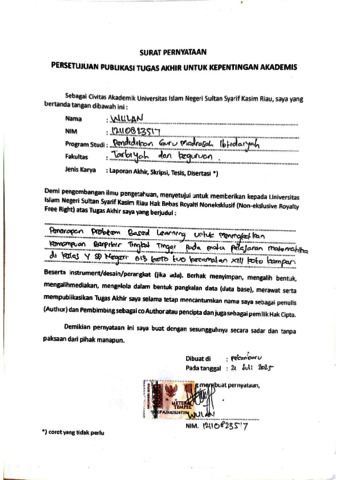 SURAT PERNYATAAN
PERSETUJUAN PUBLIKASI TUGAS AKHIR UNTUK KEPENTINGAN AKADEMIS
Sebagai Civitas Akademik Universitas Islam Negeri Sultan Syarif Kasim Riau, saya yang
bertanda tangan dibawah ini :
Nama : WULAN
NIM : 12110823517
Program Studi : Pendidikan Guru Madrasah Ibtidaiyah
Fakultas : Tarbiyah dan keguruan
Jenis Karya : Laporan Akhir, Skripsi, Tesis, Disertasi *)
Demi pengembangan ilmu pengetahuan, menyetujui untuk memberikan kepada Universitas
Islam Negeri Sultan Syarif Kasim Riau Hak Bebas Royalti Noneksklusif (Non-ekslusive Royalty
Free Right) atas Tugas Akhir saya yang berjudul :
Penerapan Problem Based Learning untuk meningkatkan
Kemampuan Berpikir Tingkat Tinggi Pada mata Pelajaran matematika
di Kelas V SD Negeri 013 Koto tuo kecamatan XIII koto kampar
Beserta instrument/desain/perangkat (jika ada). Berhak menyimpan, mengalih bentuk,
mengalihmediakan, mengelola dalam bentuk pangkalan data (data base), merawat serta
mempublikasikan Tugas Akhir saya selama tetap mencantumkan nama saya sebagai penulis
(Author) dan Pembimbing sebagai co Author atau pencipta dan juga sebagai pemilik Hak Cipta.
Demikian pernyataan ini saya buat dengan sesungguhnya secara sadar dan tanpa
paksaan dari pihak manapun.
Dibuat di : Pekanbaru
Pada tanggal : 21 Juli 2025
membuat pernyataan,
METERAI
TEMPEL
WULAN
NIM. 12110823517
*) coret yang tidak perlu